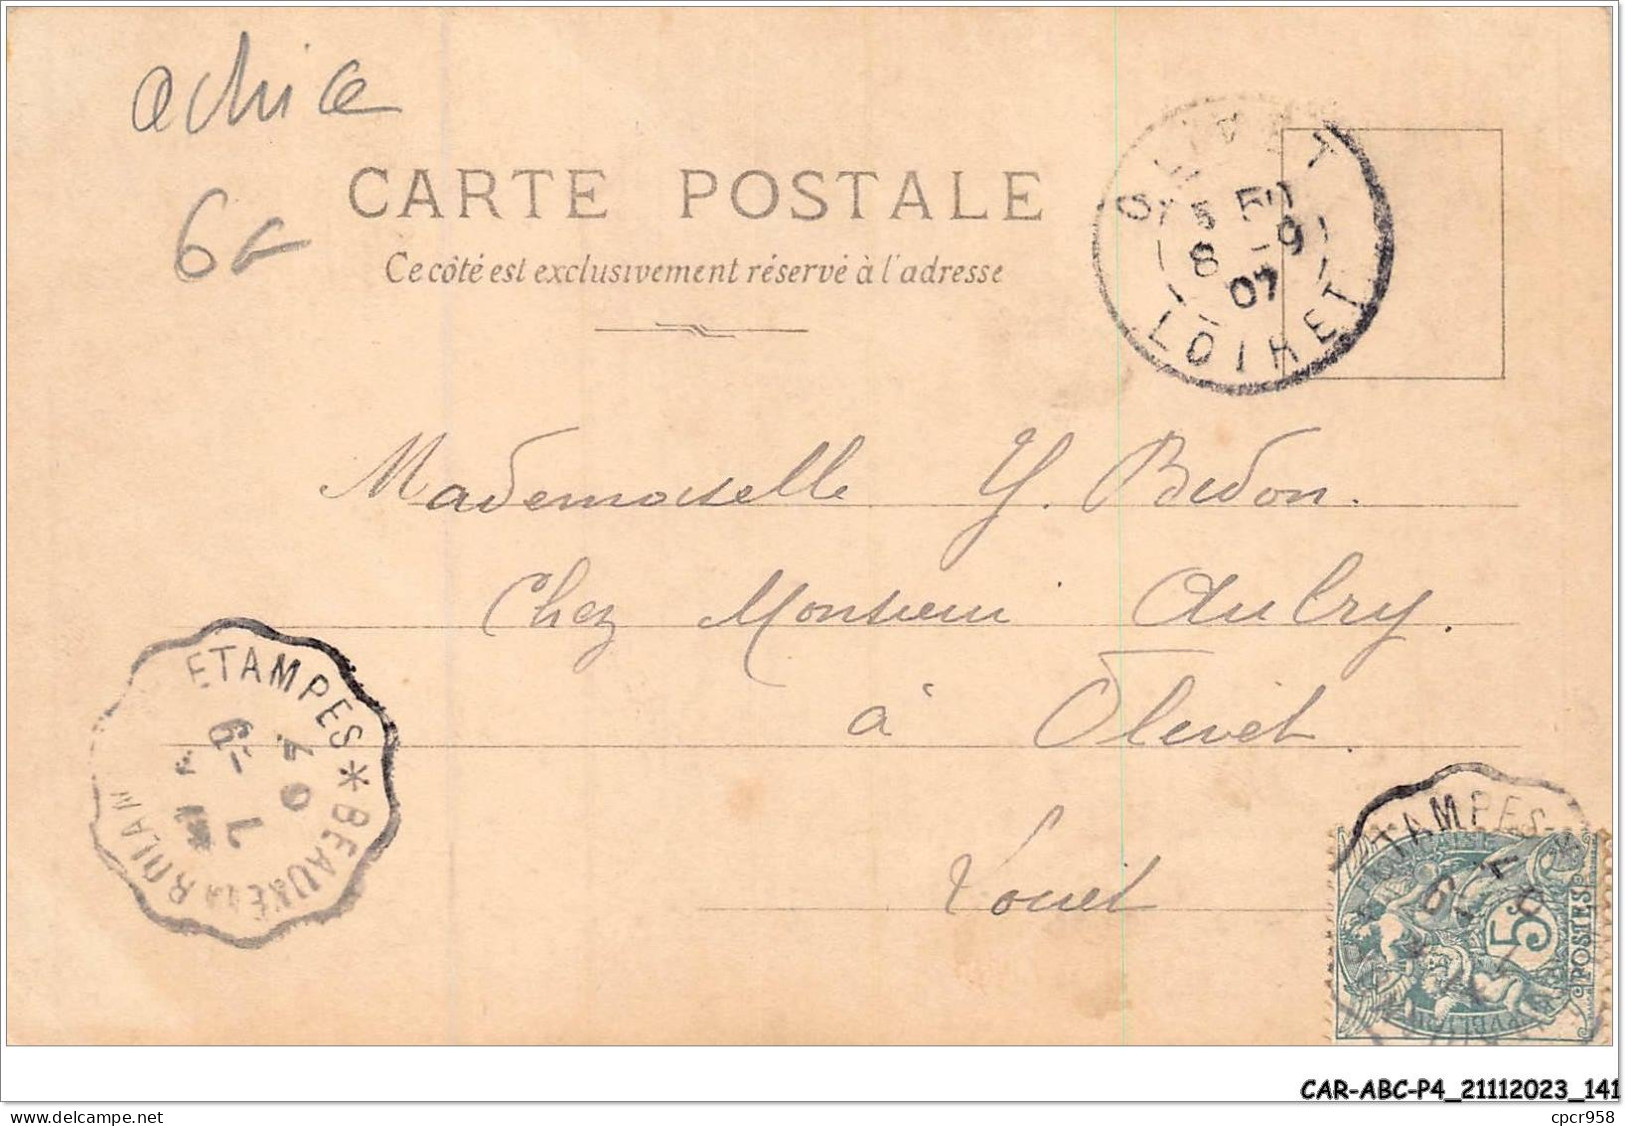 6F
CARTE POSTALE
Ce côté est exclusivement réservé à l'adresse
OLIVET
8 -9
07
LOIRET
Mademoiselle Y. Bidon.
Chez Monsieur Aubry.
à Olivet
Loiret
ETAMPES * BEAUNE LA ROLAN
7 -9
07
ETAMPES
5c
POSTES
CAR-ABC-P4_21112023_141
delcampe.net
cpcr958